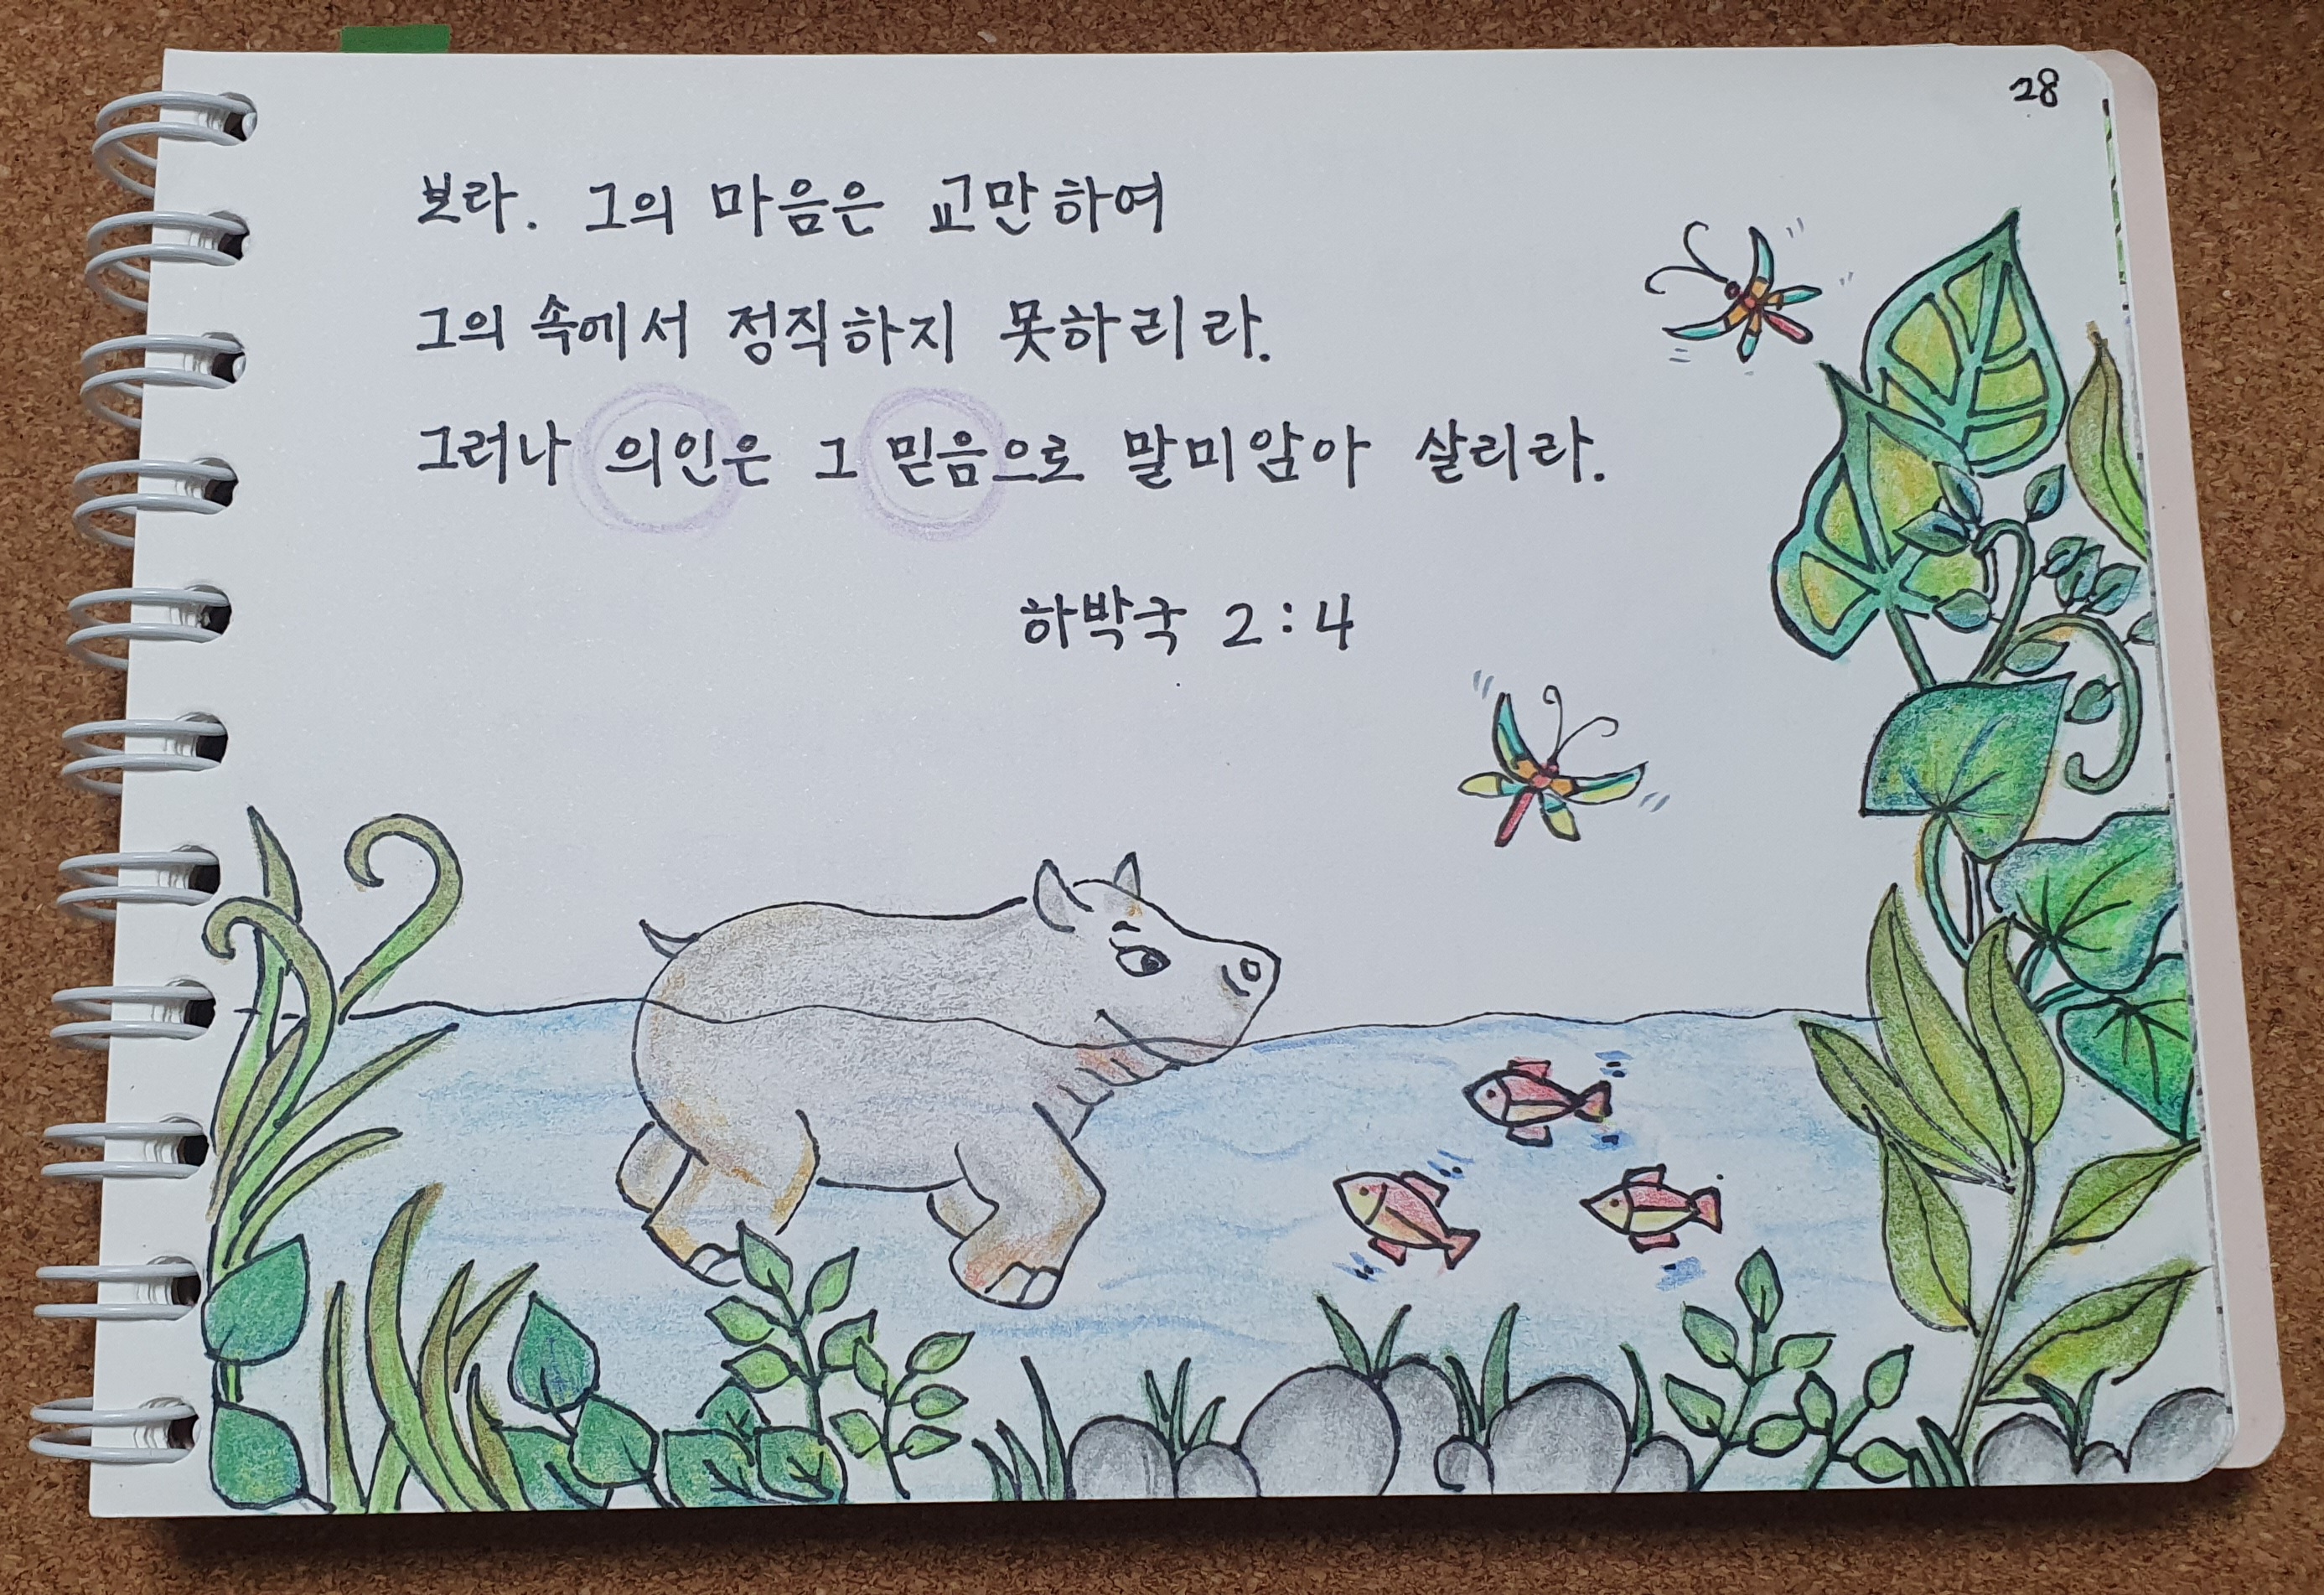 28
보라. 그의 마음은 교만하여
그의 속에서 정직하지 못하리라.
그러나 의인은 그 믿음으로 말미암아 살리라.
하박국 2:4